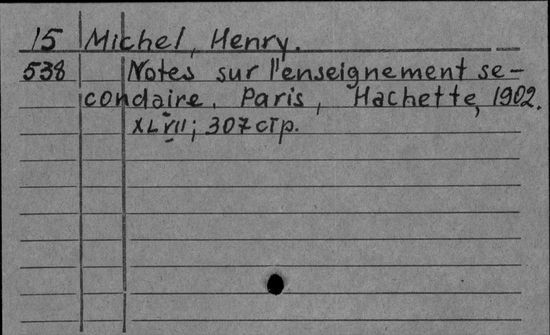 15 Michel, Henry.
538 Notes sur l'enseignement se-
condaire. Paris, Hachette, 1902.
XLVII; 307 стр.